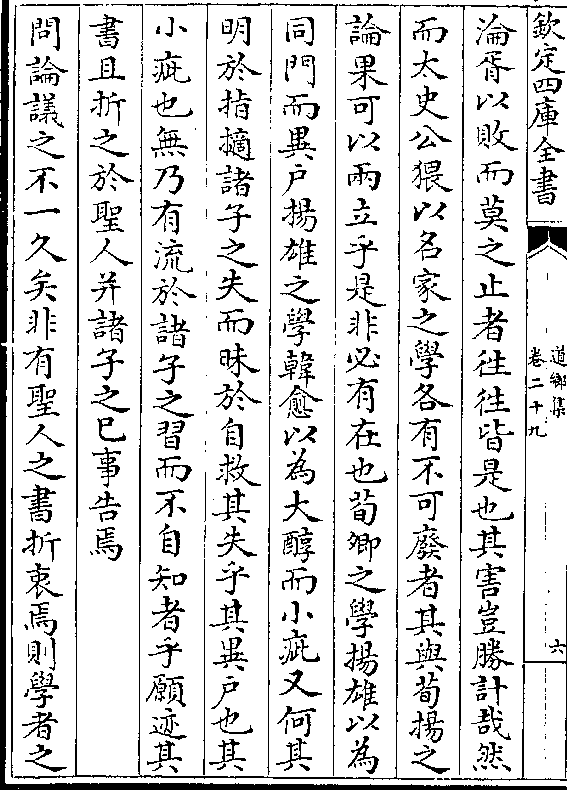 欽定四庫全書
道鄉集
卷二十九
六
淪胥以敗而莫之止者徃徃皆是也其害豈勝計哉然
而太史公猥以名家之學各有不可廢者其與荀揚之
論果可以兩立乎是非必有在也荀卿之學揚雄以為
同門而異户揚雄之學韓愈以為大醇而小疵又何其
明於指擿諸子之失而昧於自救其失乎其異户也其
小疵也無乃有流於諸子之習而不自知者乎願迹其
書且折之於聖人并諸子之已事告焉
問論議之不一久矣非有聖人之書折衷焉則學者之